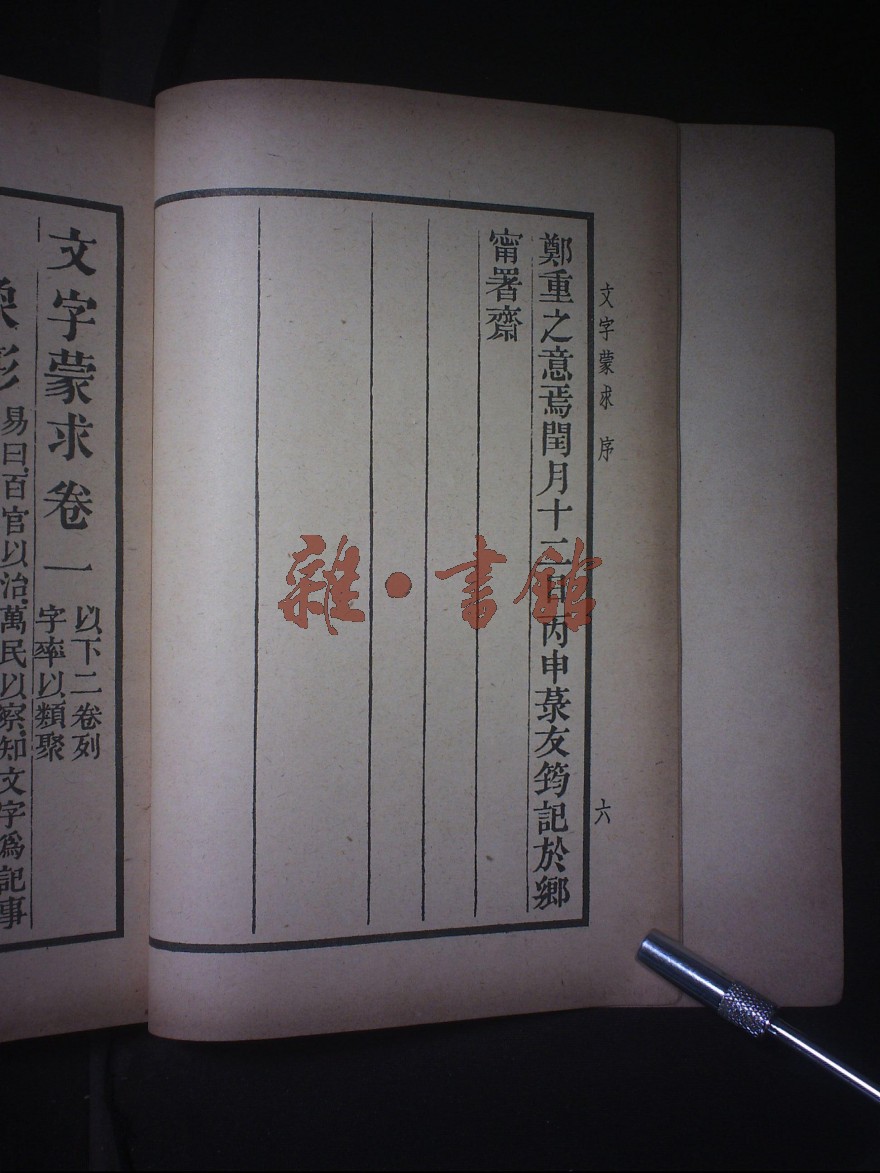 文字蒙求 序
六
鄭重之意焉閏月十二日丙申菉友筠記於鄉
甯署齋
雜·書館
文字蒙求卷一
以下二卷列
字率以類聚
象形
易曰百官以治萬民以察知文字爲記事